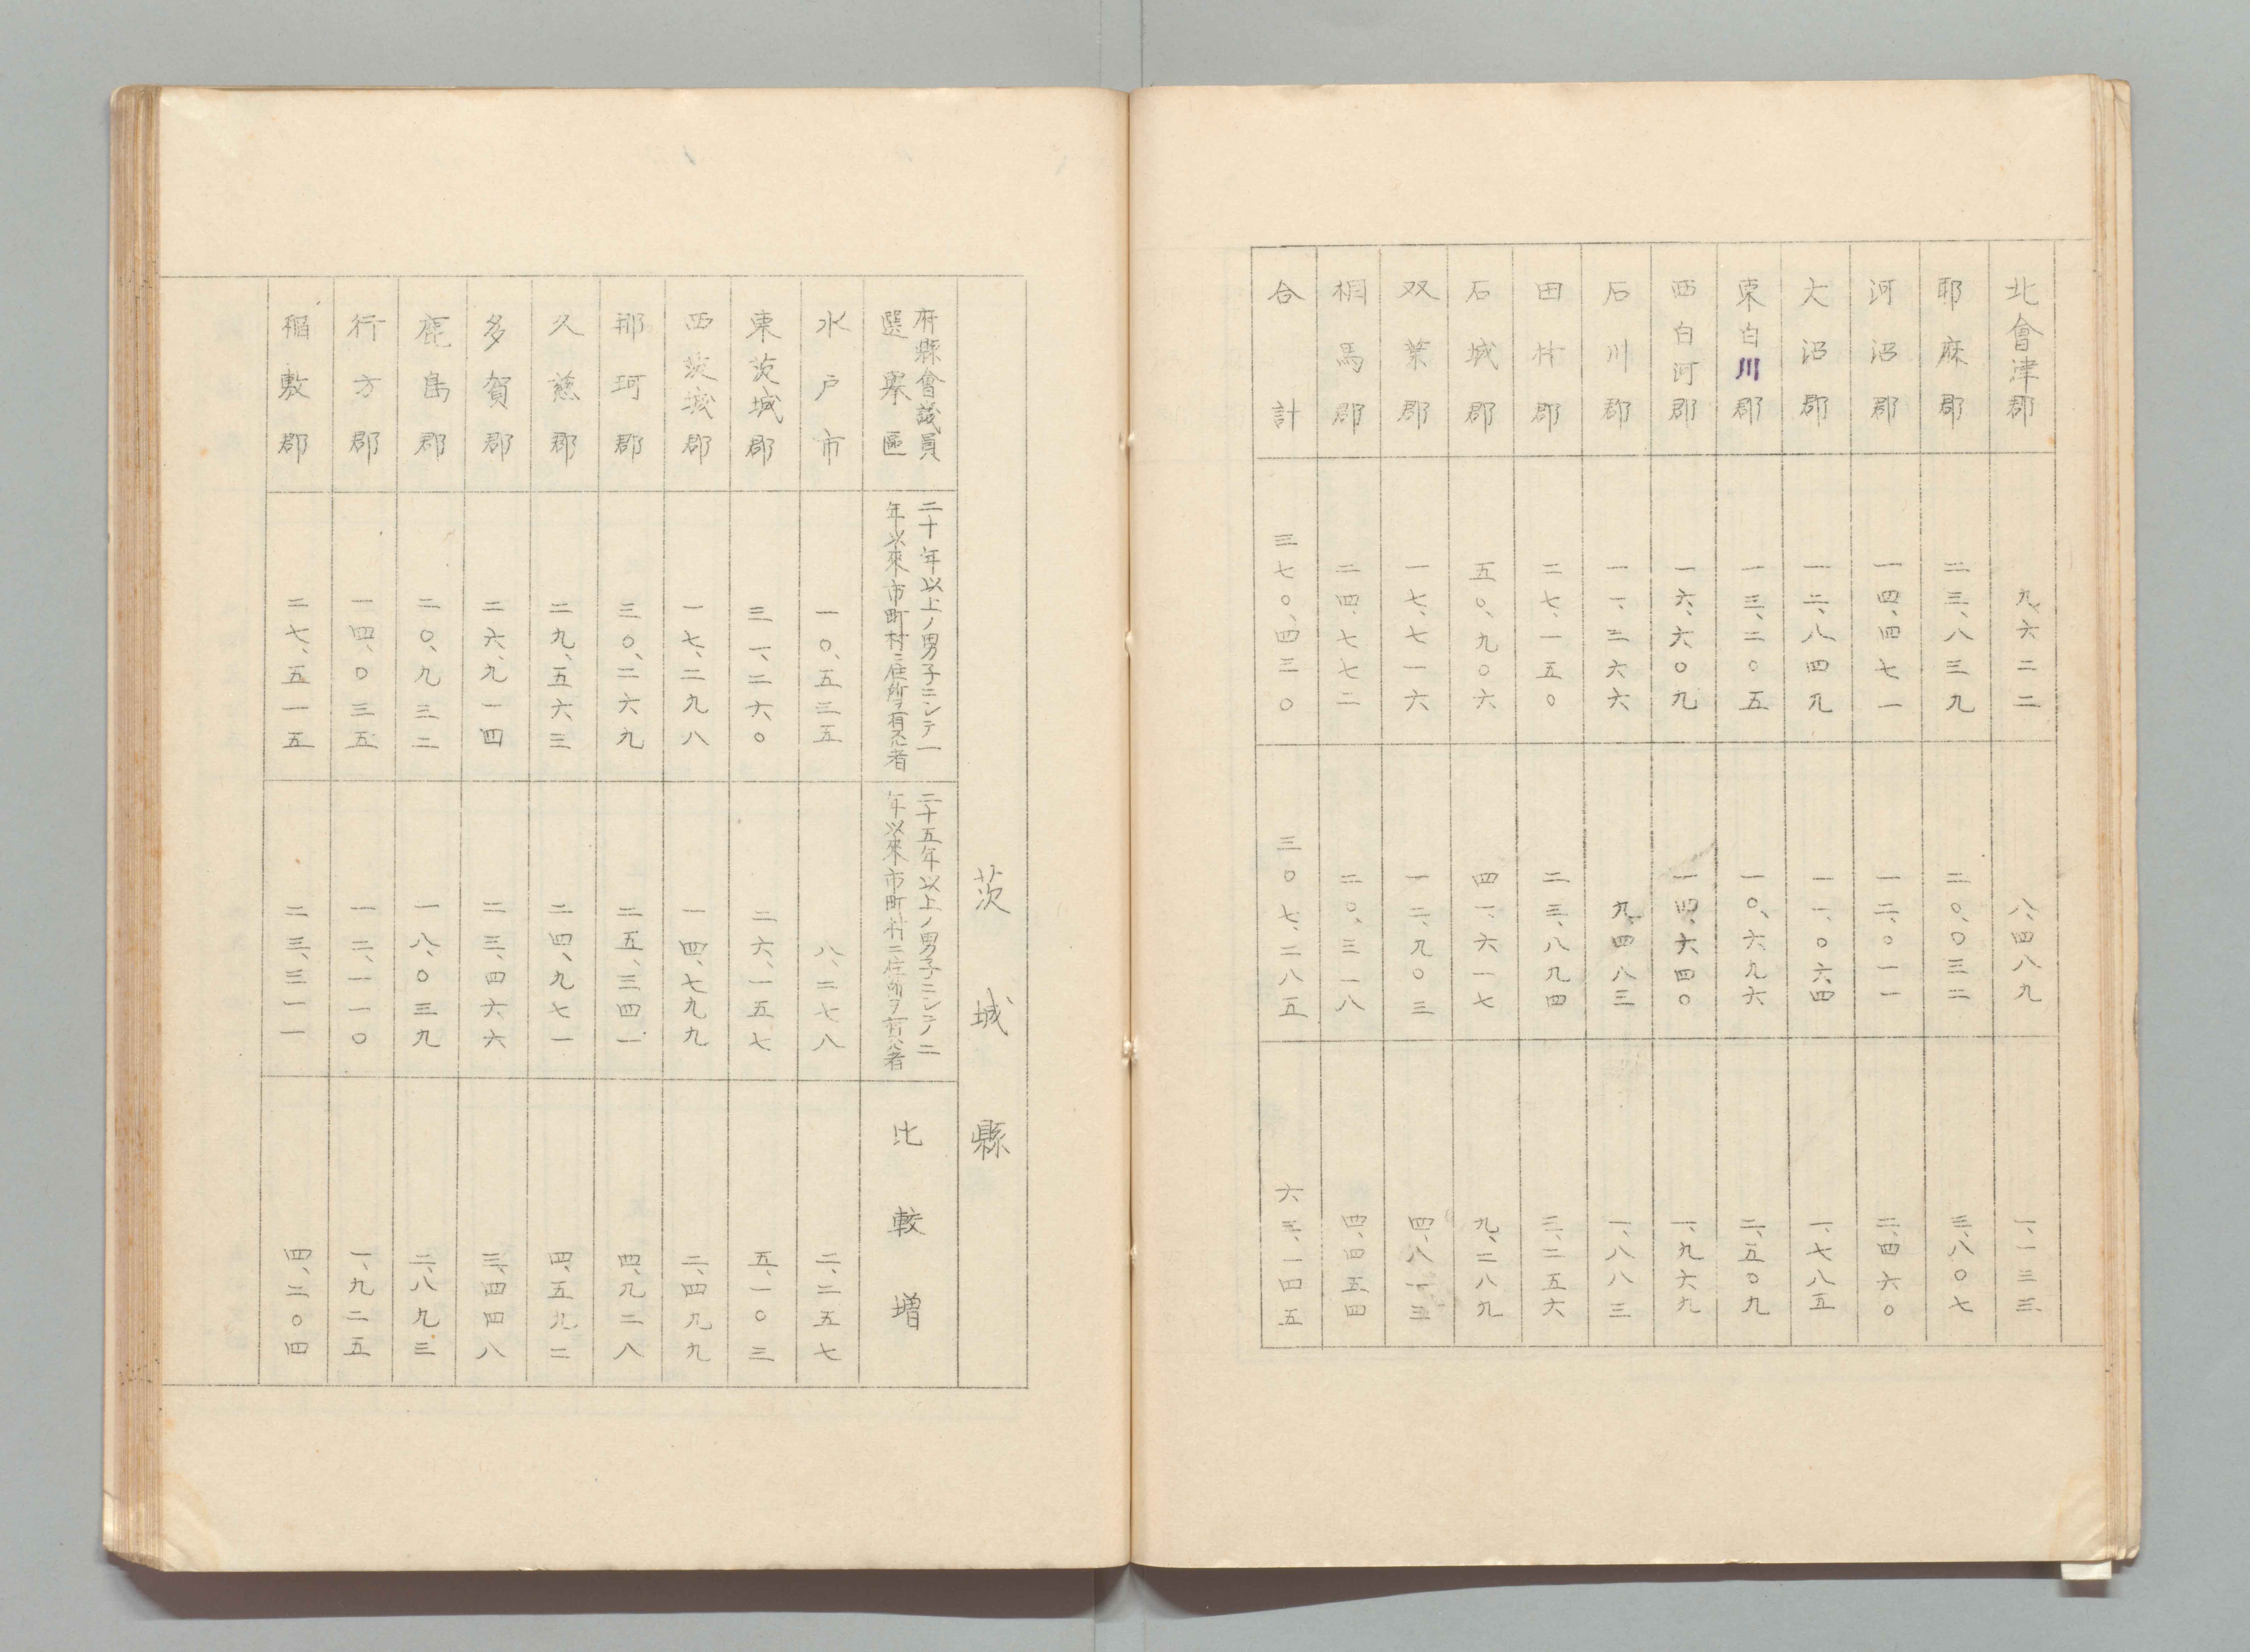 北會津郡 九、六二二 八、四八九 一、一三三
耶麻郡 二三、八三九 二〇、〇三二 三、八〇七
河沼郡 一四、四七一 一二、〇一一 二、四六〇
大沼郡 一二、八四九 一一、〇六四 一、七八五
東白川郡 一三、二〇五 一〇、六九六 二、五〇九
西白河郡 一六、六〇九 一四、六四〇 一、九六九
石川郡 一一、三六六 九、四八三 一、八八三
田村郡 二七、一五〇 二三、八九四 三、二五六
石城郡 五〇、九〇六 四一、六一七 九、二八九
双葉郡 一七、七一六 一二、九〇三 四、八一三
相馬郡 二四、七七二 二〇、三一八 四、四五四
合計 三七〇、四三〇 三〇七、二八五 六三、一四五
茨城縣
府縣會議員
選擧區
二十年以上ノ男子ニシテ一
年以來市町村ニ住所ヲ有スル者
二十五年以上ノ男子ニシテ二
年以來市町村ニ住所ヲ有スル者
比較増
水戸市 一〇、五三五 八、二七八 二、二五七
東茨城郡 三一、二六〇 二六、一五七 五、一〇三
西茨城郡 一七、二九八 一四、七九九 二、四九九
那珂郡 三〇、二六九 二五、三四一 四、九二八
久慈郡 二九、五六三 二四、九七一 四、五九二
多賀郡 二六、九一四 二三、四六六 三、四四八
鹿島郡 二〇、九三二 一八、〇三九 二、八九三
行方郡 一四、〇三五 一二、一一〇 一、九二五
稲敷郡 二七、五一五 二三、三一一 四、二〇四